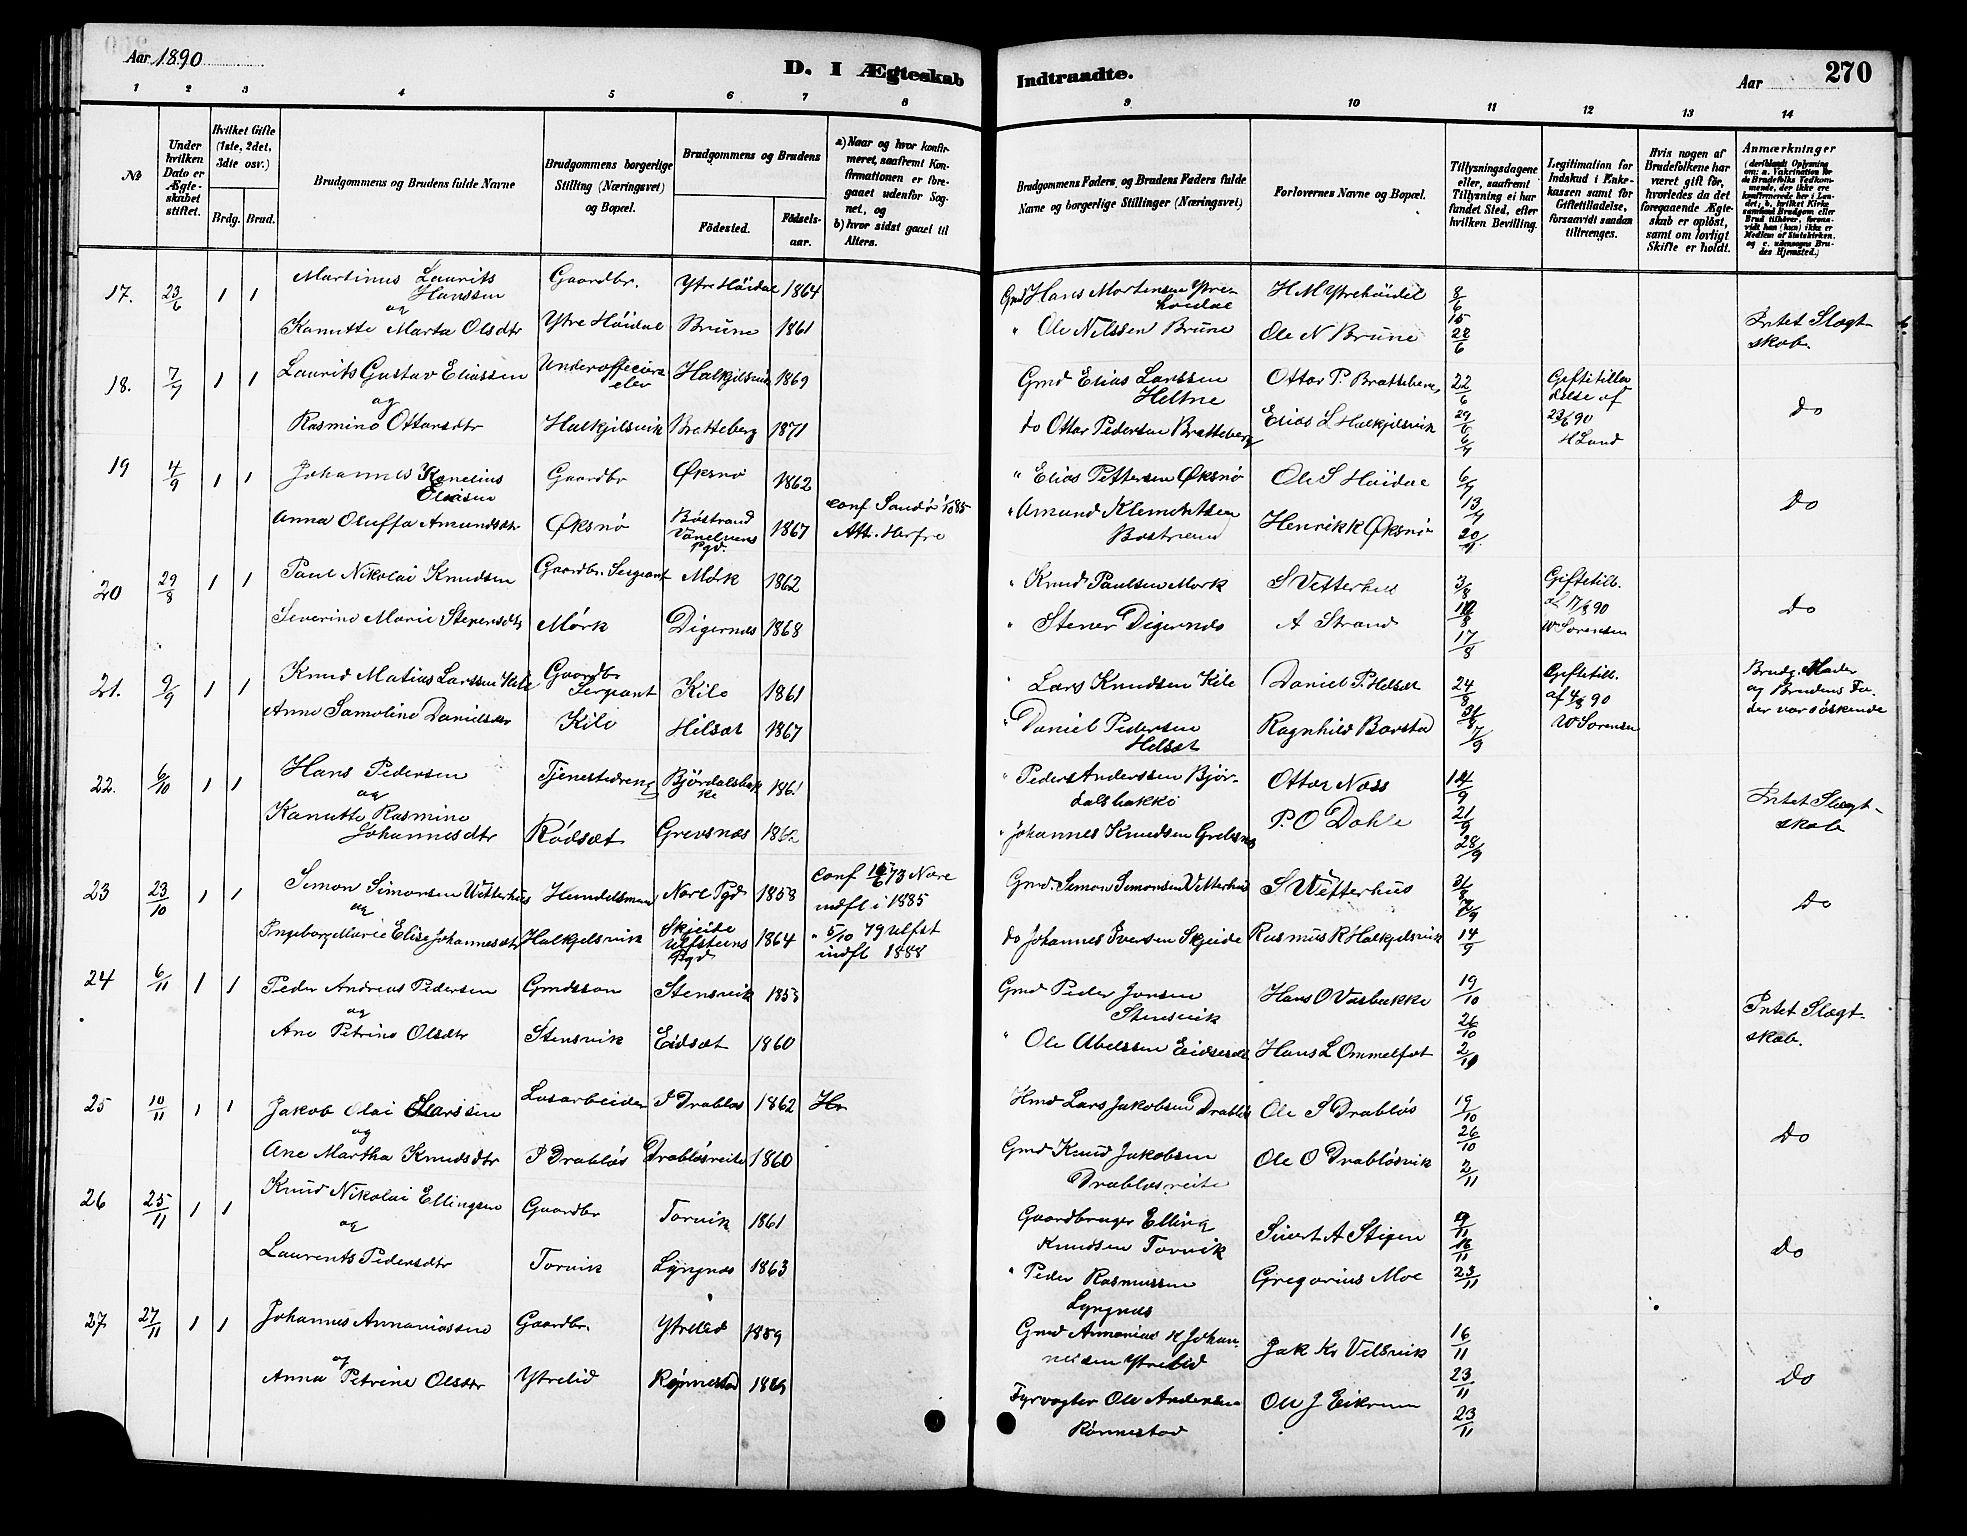 Aar 1890
D. I Ægteskab Indtraadte.
Aar
270
1 2 3 4 5 6 7 8 9 10 11 12 13 14
No
Under hvilken Dato er Ægteskabet stiftet.
Hvilket Gifte (1ste, 2det, 3die osv.)
Brdg. Brud.
Brudgommens og Brudens fulde Navne
Brudgommens borgerlige Stilling (Næringsvei) og Bopæl.
Brudgommens og Brudens
Fødested.
Fødselsaar.
a) Naar og hvor konfirmeret, saafremt Konfirmationen er foregaaet udenfor Sognet, og
b) hvor sidst gaaet til Alters.
Brudgommens Faders og Brudens Faders fulde Navne og borgerlige Stillinger (Næringsvei)
Forlovernes Navne og Bopæl.
Tillysningsdagene eller, saafremt Tillysning ei har fundet Sted, efter hvilken Bevilling.
Legitimation for Indskud i Enkekassen samt for Giftetilladelse, forsaavidt saadan tiltrænges.
Hvis nogen af Brudefolkene har været gift før, hvorledes da det foregaaende Ægteskab er opløst, samt om lovligt Skifte er holdt.
Anmærkninger
17. 23/6 1 1 Martinus Laurits Hanssen Gaardbr. Ytre Höidal 1864 Gmd Hans Mortensen Ytrehoidal H M Ytrehöidal 8/6
og
Kanutte Marta Olsdtr Ytre Höidal Brune 1861 " Ole Nilssen Brüne Ole N Brüne 15 22/6 Intet Slægtskab.
18. 7/7 1 1 Laurits Gustav Eliassen Underofficierselev Halkjilsvik 1869 Gmd Elias Larssen Heltne Ottar P. Bratteberg 22/6 Giftetilladelse af 23/6 90 H Lund
og
Rasmine Ottarsdtr Halkjilsvik Bratteberg 1871 do Ottar Pedersen Bratteberg Elias L Halkjilsvik 29/6 6/7 do
19 4/9 1 1 Johannes Kornelius Eliasen Gaardbr Øksnø 1862 " Elias Pettersen Øksnø Ole S Höidal 6/7
Anna Oluffa Amundsdtr Øksnø Böstrand Vanelvens Pgd. 1867 conf Sandö 1/10 85 Att. Herfra " Amund Klementsen Bostrand Henrik K Øksnø 13/7 20/7 do
20 29/8 1 1 Paul Nikolai Knudsen Gaardbr. Sergeant Mørk 1862 " Knud Paulsen Mork S Vetterhus 3/8 Giftetill. af 17/8 90 W Sorensen
Severine Marie Stenersdtr Mørk Digernæs 1868 " Stener Digernæs A Strand 10/8 17/8 do
21. 9/9 1 1 Knud Matias Larssen Kile Gaardbr Sergeant Kile 1861 " Lars Knudsen Kile Daniel P. Helsæt 24/8 Giftetill. af 4/8 90 W Sorensen
Anne Samoline Danielsdtr Kile Hilsæt 1867 " Daniel Pedersen Helsæt Ragnhild Barstad 31/8 7/9 Brudg. Moder og Brudens Fader var söskende
22. 6/10 1 1 Hans Pedersen Tjenestedreng Björdalsbakke 1861 " Peder Anderssen Bjørdalsbakke Ottar Næss 14/9
og
Kanutte Rasmine Johannesdtr Rödsæt Grevsnæs 1862 " Johannes Knudsen Grevsnæs P. O Dahle 21/9 28/9 Intet Slægtskab
23 23/10 1 1 Simon Simonsen Vetterhus Handelsmand Nore Pgd 1858 conf 73 Nore indfl i 1885 Gmd. Simon Simonsen Vetterhus S Vetterhus 31/8 7/9
og
Ingeborg Marie Elise Johannesdtr Halkjelsvik Skjeide Ulfsteens Pgd 1864 " 5/10 79 Ulfst indfl 1888 do Johannes Iversen Skjeide Rasmus R Halkjelsvik 14/9 do
24 6/11 1 1 Peder Andreas Pedersen Gmdssøn Stensvik 1853 Gmd Peder Jonsen Stensvik Hans O Vasbakke 19/10
og
Ane Petrine Olsdtr Stensvik Eidsæt 1860 " Ole Abelssen Eidset Hans L Ommelfot 26/10 2/11 Intet Slægtskab.
25 10/11 1 1 Jakob Olai Larssen Løsarbeider I Drabløs 1862 Hr Hmd Lars Jakobsen Drabløs Ole S Drabløs 19/10
og
Ane Martha Knudsdtr I Drabløs Drabløsreite 1860 Gmd Knud Jakobsen Drabløsreite Ole O Drabløsvik 26/10 2/11 do
26 25/11 1 1 Knud Nikolai Ellingsen Gaardbr Torvik 1861 Gaardbruger Elling Knudsen Torvik Sivert A Stigen 9/11 16/11
og
Laurents Pedersdtr Torvik Lyngnæs 1863 " Peder Rasmussen Lyngnæs Gregorius Moe 23/11 do
27 27/11 1 1 Johannes Annaniassen Gaardbr. Ytrelid 1859 Gmd Annanias H Johannesen Ytrelid Jak Kr Velsvik 16/11
og
Anna Petrine Olsdtr Ytrelid Rønnestad Fyrvogter Ole Andersen Rönnestad Ole J Eikrem 23/11 23/11 do